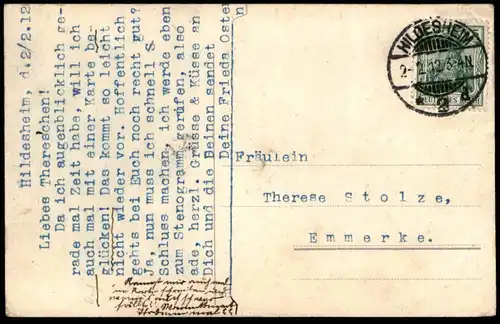 Hildesheim, d. 2/2.12
Liebes Thereschen!
Da ich augenblicklich ge-
rade mal Zeit habe, will ich
auch mal mit einer Karte be
glücken! Das kommt so leicht
nicht wieder vor. Hoffentlich
gehts bei Euch noch recht gut?
Ja, nun muss ich schnell S
Schluss machen, ich werde eben
zum Stenogramm gerufen, also
ade, herzl. Grüsse & Küsse an
Dich und die Deinen sendet
Deine Frieda Osten
HILDESHEIM
2.2.12.3-4N
* 2 a
Fräulein
Therese Stolze,
Emmerke.